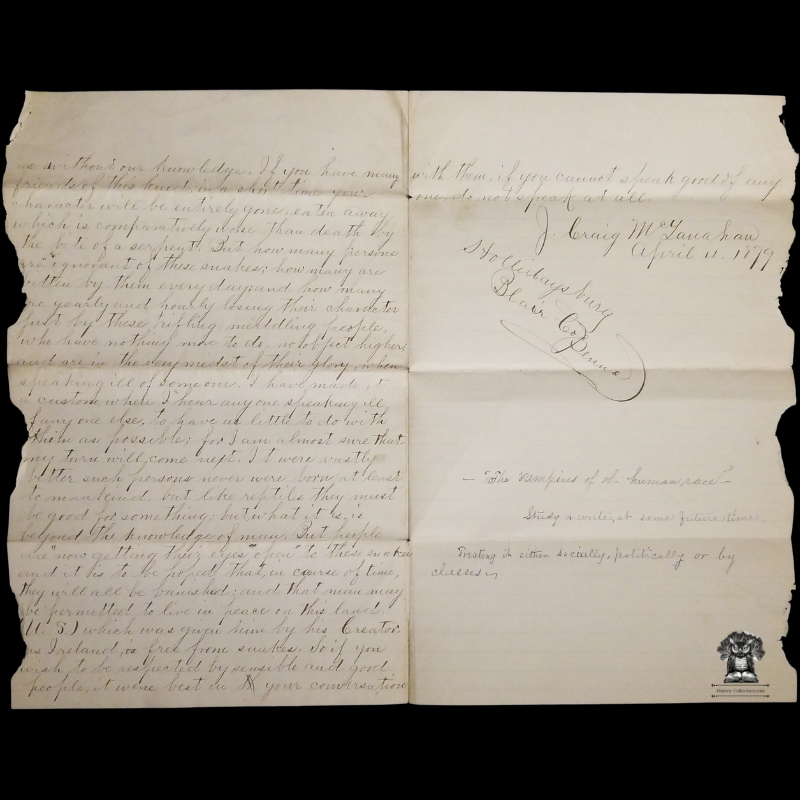 us without our knowledge. If you have many
friends of this kind, in a short time your
character will be entirely gone, eaten away
which is comparatively worse than death by
the bite of a serpent. But how many persons
are "ignorant of these snakes; how many are
bitten by them every day; and how many
are yearly and hourly losing their character
just by these trifling, meddling people,
who have nothing more to do, no object higher
and are in the very midst of their glory, when
speaking ill of someone. I have made it
a custom, when I hear anyone speaking ill
of any one else, to have as little to do with
them as possible; for I am almost sure that
my turn will come next. It were vastly
better such persons never were born, at least
to mankind, but like reptiles they must
be good for something; but what it is, is
beyond the knowledge of many. But people
are "now getting their eyes "open" to these snakes
and it is to be hoped, that, in course of time,
they will all be banished; and that man may
be permitted to live in peace on this land
(U. S.) which was given him by his Creator.
as Ireland, is free from snakes. So if you
wish, to be respected by sensible and good
people, it were best in your conversation
with them, if you cannot speak good of any
one, do not speak at all.
J. Craig McLanahan
April 11. 1879
Hollidaysburg
Blair Co
Penna
— "The vampires of the human race" —
Study a write, at some future time.
Treating it either socially, politically or by
classes
History Collectionaires